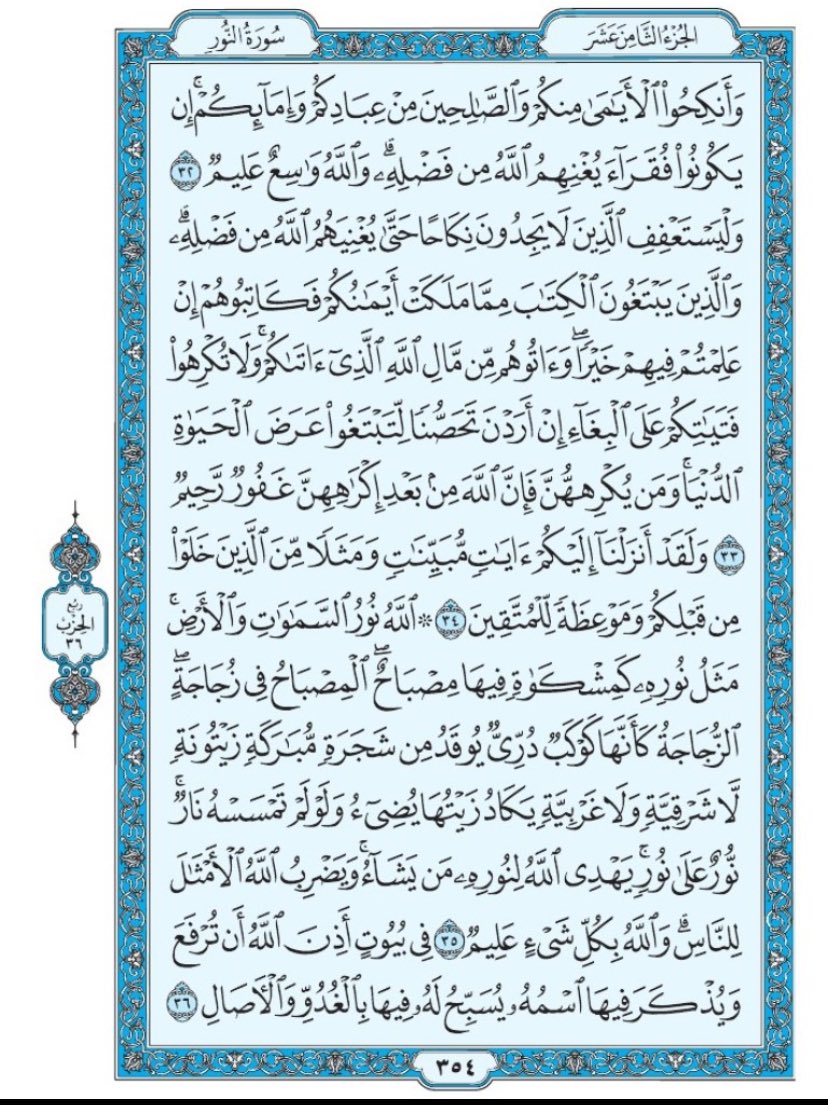 الجُزْءُ الثَّامِنَ عَشَرَ
سُورَةُ النُّورِ
وَأَنكِحُواْ ٱلْأَيَـٰمَىٰ مِنكُمْ وَٱلصَّـٰلِحِينَ مِنْ عِبَادِكُمْ وَإِمَآئِكُمْۚ إِن
يَكُونُواْ فُقَرَآءَ يُغْنِهِمُ ٱللَّهُ مِن فَضْلِهِۦۗ وَٱللَّهُ وَٰسِعٌ عَلِيمٌ ٣٢
وَلْيَسْتَعْفِفِ ٱلَّذِينَ لَا يَجِدُونَ نِكَاحًا حَتَّىٰ يُغْنِيَهُمُ ٱللَّهُ مِن فَضْلِهِۦۗ
وَٱلَّذِينَ يَبْتَغُونَ ٱلْكِتَـٰبَ مِمَّا مَلَكَتْ أَيْمَـٰنُكُمْ فَكَاتِبُوهُمْ إِنْ
عَلِمْتُمْ فِيهِمْ خَيْرًاۖ وَءَاتُوهُم مِّن مَّالِ ٱللَّهِ ٱلَّذِىٓ ءَاتَىٰكُمْۚ وَلَا تُكْرِهُواْ
فَتَيَـٰتِكُمْ عَلَى ٱلْبِغَآءِ إِنْ أَرَدْنَ تَحَصُّنًا لِّتَبْتَغُواْ عَرَضَ ٱلْحَيَوٰةِ
ٱلدُّنْيَاۚ وَمَن يُكْرِههُّنَّ فَإِنَّ ٱللَّهَ مِنۢ بَعْدِ إِكْرَٰهِهِنَّ غَفُورٌ رَّحِيمٌ
٣٣ وَلَقَدْ أَنزَلْنَآ إِلَيْكُمْ ءَايَـٰتٍ مُّبَيِّنَـٰتٍ وَمَثَلًا مِّنَ ٱلَّذِينَ خَلَوْاْ
مِن قَبْلِكُمْ وَمَوْعِظَةً لِّلْمُتَّقِينَ ٣٤ ۞ ٱللَّهُ نُورُ ٱلسَّمَـٰوَٰتِ وَٱلْأَرْضِۚ
مَثَلُ نُورِهِۦ كَمِشْكَوٰةٍ فِيهَا مِصْبَاحٌۖ ٱلْمِصْبَاحُ فِى زُجَاجَةٍۖ
ٱلزُّجَاجَةُ كَأَنَّهَا كَوْكَبٌ دُرِّىٌّ يُوقَدُ مِن شَجَرَةٍ مُّبَـٰرَكَةٍ زَيْتُونَةٍ
لَّا شَرْقِيَّةٍ وَلَا غَرْبِيَّةٍ يَكَادُ زَيْتُهَا يُضِىٓءُ وَلَوْ لَمْ تَمْسَسْهُ نَارٌۚ
نُّورٌ عَلَىٰ نُورٍۗ يَهْدِى ٱللَّهُ لِنُورِهِۦ مَن يَشَآءُۚ وَيَضْرِبُ ٱللَّهُ ٱلْأَمْثَـٰلَ
لِلنَّاسِۗ وَٱللَّهُ بِكُلِّ شَىْءٍ عَلِيمٌ ٣٥ فِى بُيُوتٍ أَذِنَ ٱللَّهُ أَن تُرْفَعَ
وَيُذْكَرَ فِيهَا ٱسْمُهُۥ يُسَبِّحُ لَهُۥ فِيهَا بِٱلْغُدُوِّ وَٱلْـَٔاصَالِ ٣٦
ربع
الحزب
٣٦
٣٥٤